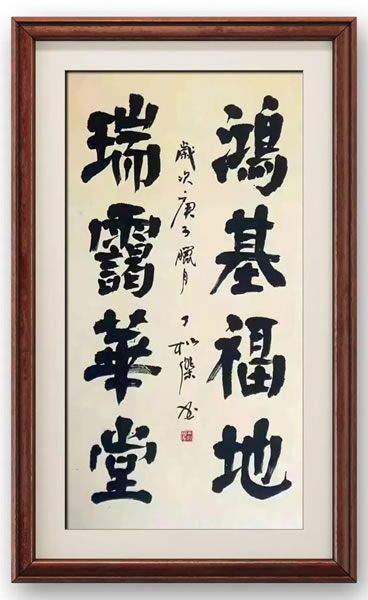 鴻基福地
歲次庚子臘月丁松傑書
瑞靄華堂